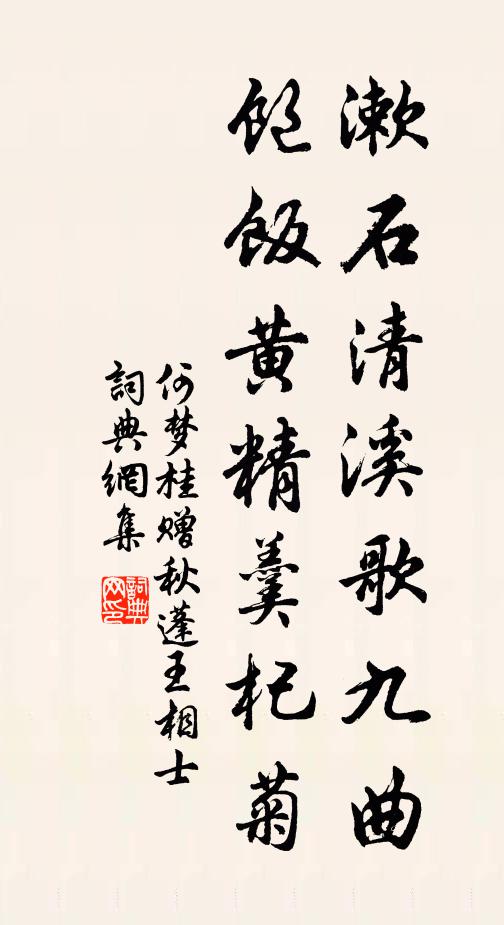 漱石清溪歌九曲
飽飯黄精羹杞菊
何梦桂赠秋蓬王相士
詞典網集
詞典网印